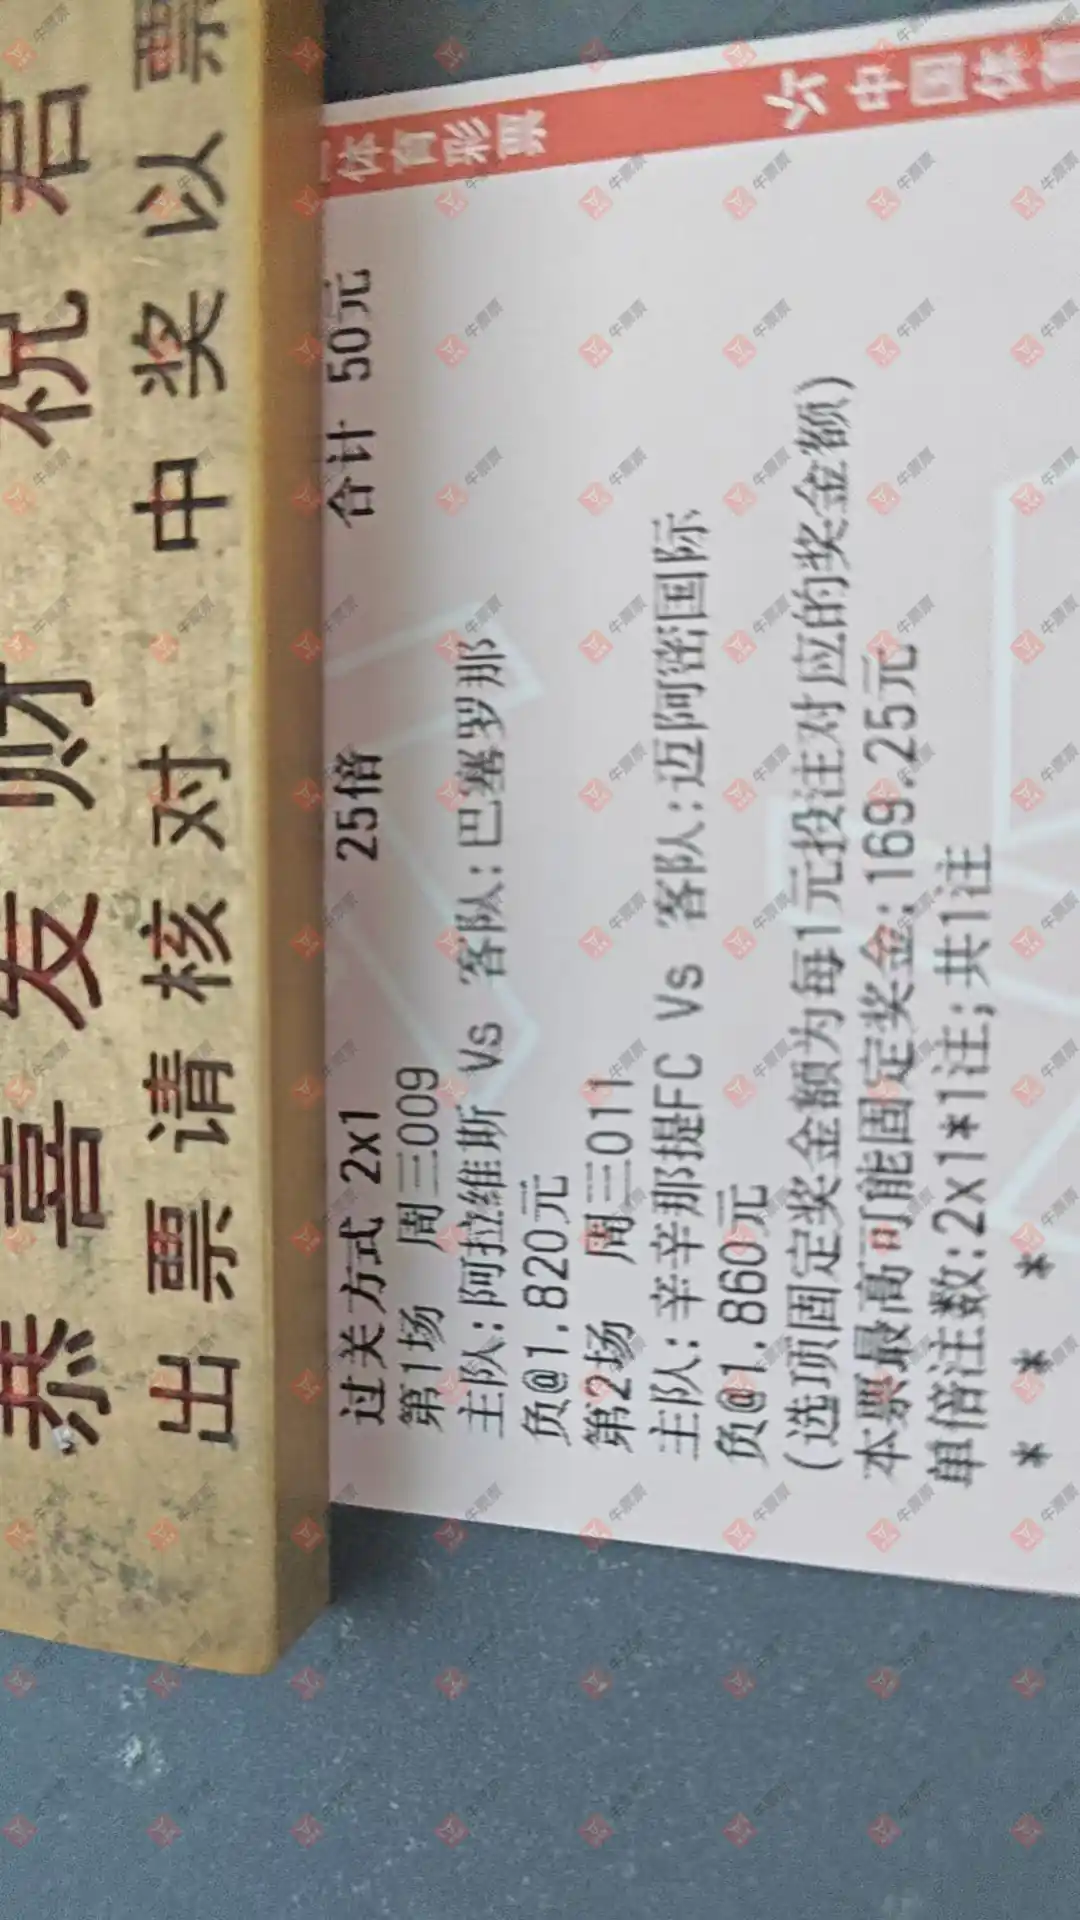 恭喜发财 祝君
出票请核对 中奖以票
体育彩票 中国体育
过关方式 2x1 25倍 合计 50元
第1场 周三009
主队:阿拉维斯 Vs 客队:巴塞罗那
负@1.820元
第2场 周三011
主队:辛辛那提FC Vs 客队:迈阿密国际
负@1.860元
(选项固定奖金额为每1元投注对应的奖金额)
本票最高可能固定奖金:169.25元
单倍注数:2x1*1注;共1注
* * *
牛票票